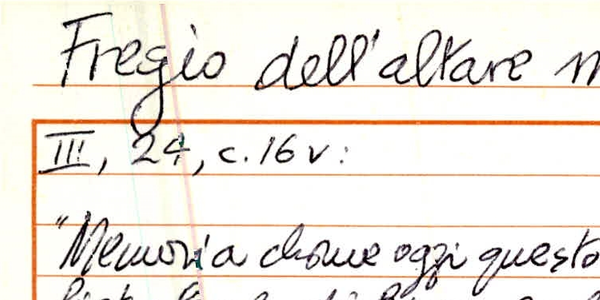 Fregio dell'altare
III, 24, c. 16 v:
"Memoria chome oggi questo